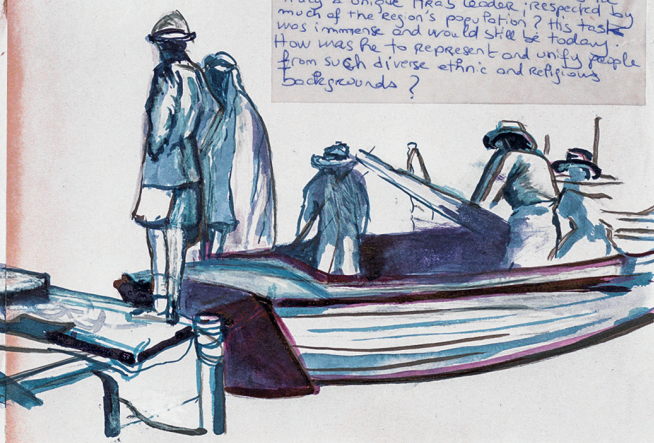 Truly a unique Arab leader, respected by
much of the region's population? His task
was immense and would still be today.
How was he to represent and unify people
from such diverse ethnic and religious
backgrounds?